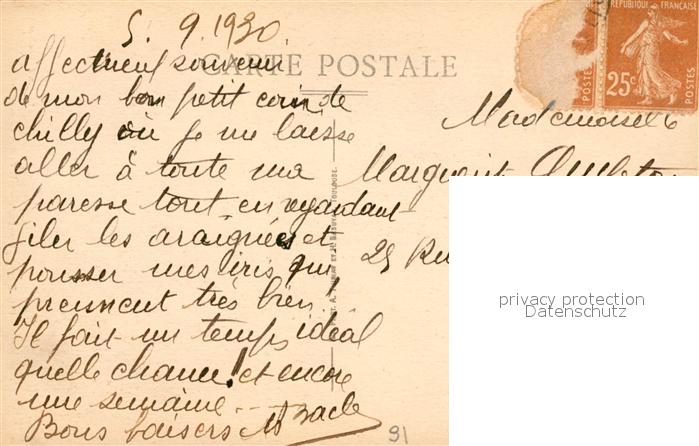 5. 9. 1930.
CARTE POSTALE
RÉPUBLIQUE FRANÇAISE
POSTES
25c
POSTES
affectueux souvenir
de mon bon petit coin de
chilly où je me laisse
aller à toute ma
paresse tout en regardant
filer les araignées et
pousser mes iris qui
prennent très bien!
Il fait un temps idéal
quelle chance! et encore
une semaine...
Bons baisers
Mademoiselle
25 Rue
privacy protection
Datenschutz
91